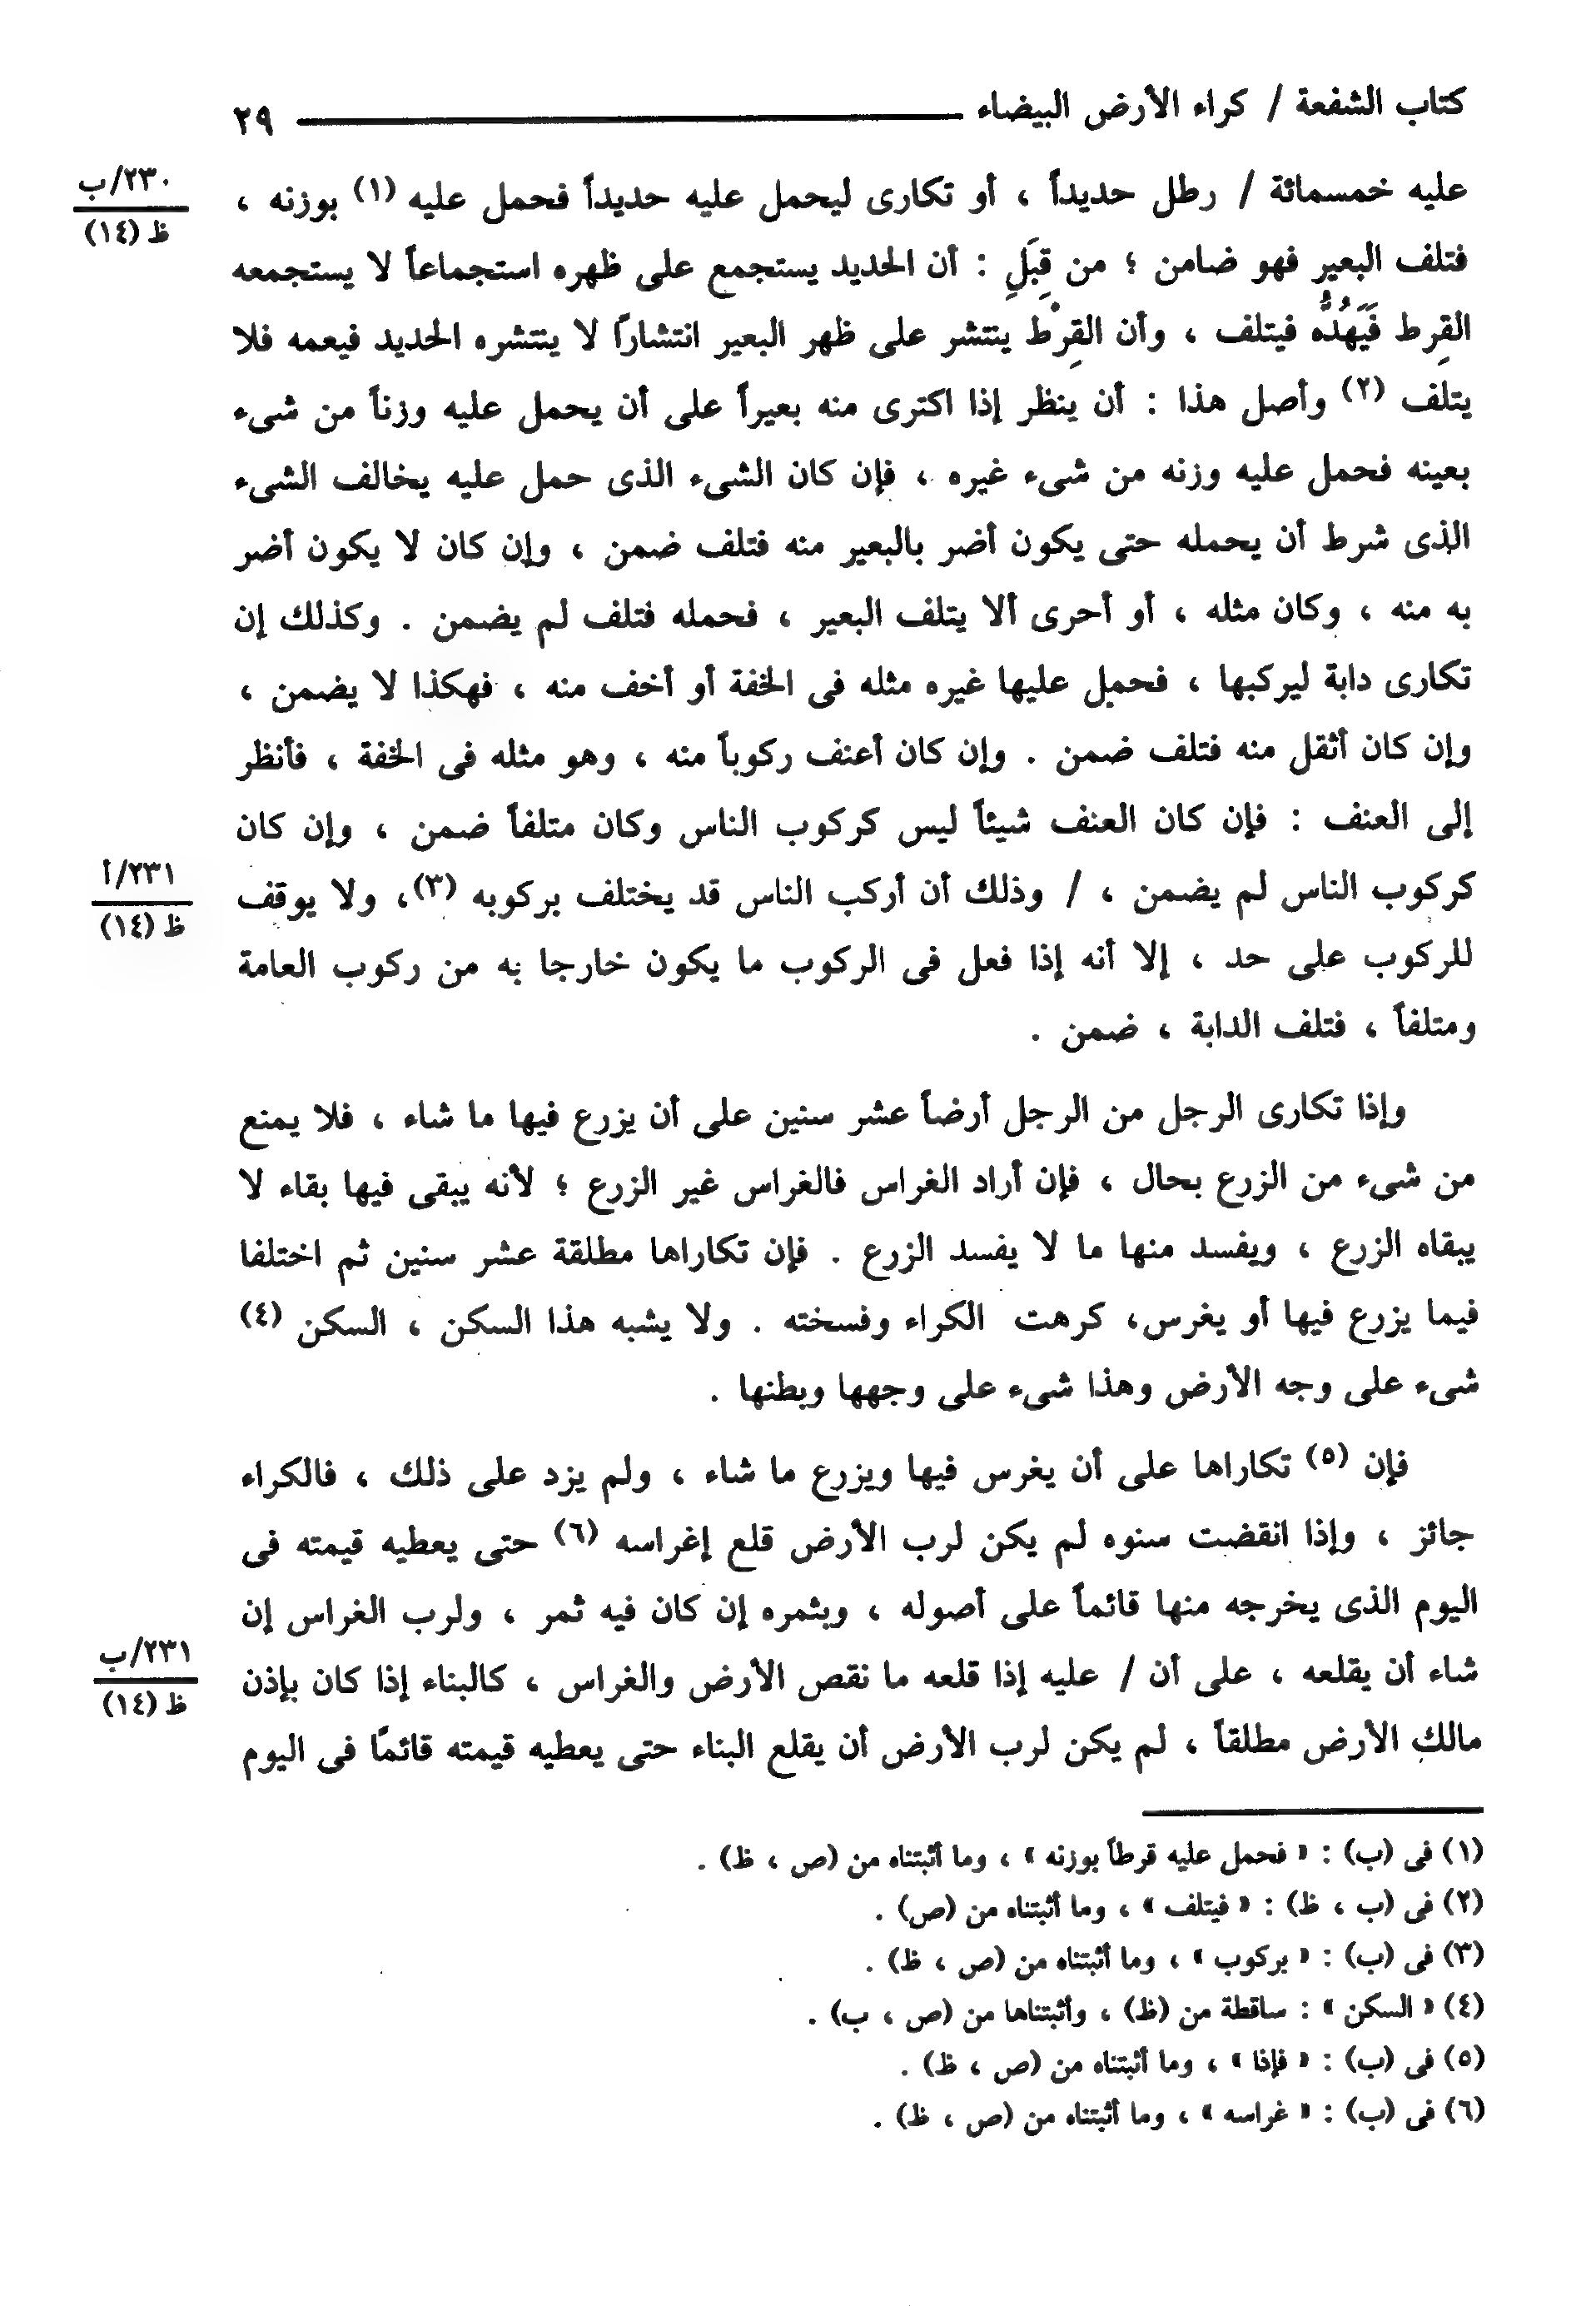 كتاب الشفعة / كراء الأرض البيضاء ٢٩
عليه خمسمائة / رطل حديداً ، أو تكارى ليحمل عليه حديداً فحمل عليه (١) بوزنه ،
٢٣٠/ب
ظ (١٤)
فتلف البعير فهو ضامن ؛ من قِبَلِ : أن الحديد يستجمع على ظهره استجماعاً لا يستجمعه
القِرط فَيَهُدُّه فيتلف ، وأن القِرْط ينتشر على ظهر البعير انتشاراً لا ينتشره الحديد فيعمه فلا
يتلف (٢) وأصل هذا : أن ينظر إذا اكترى منه بعيراً على أن يحمل عليه وزناً من شىء
بعينه فحمل عليه وزنه من شىء غيره ، فإن كان الشىء الذى حمل عليه يخالف الشىء
الذى شرط أن يحمله حتى يكون أضر بالبعير منه فتلف ضمن ، وإن كان لا يكون أضر
به منه ، وكان مثله ، أو أحرى ألا يتلف البعير ، فحمله فتلف لم يضمن . وكذلك إن
تكارى دابة ليركبها ، فحمل عليها غيره مثله فى الخفة أو أخف منه ، فهكذا لا يضمن ،
وإن كان أثقل منه فتلف ضمن . وإن كان أعنف ركوباً منه ، وهو مثله فى الخفة ، فأنظر
إلى العنف : فإن كان العنف شيئاً ليس كركوب الناس وكان متلفاً ضمن ، وإن كان
كركوب الناس لم يضمن ، / وذلك أن أركب الناس قد يختلف بركوبه (٣)، ولا يوقف
٢٣١/أ
ظ (١٤)
للركوب على حد ، إلا أنه إذا فعل فى الركوب ما يكون خارجا به من ركوب العامة
ومتلفاً ، فتلف الدابة ، ضمن .
وإذا تكارى الرجل من الرجل أرضاً عشر سنين على أن يزرع فيها ما شاء ، فلا يمنع
من شىء من الزرع بحال ، فإن أراد الغراس فالغراس غير الزرع ؛ لأنه يبقى فيها بقاء لا
يبقاه الزرع ، ويفسد منها ما لا يفسد الزرع . فإن تكاراها مطلقة عشر سنين ثم اختلفا
فيما يزرع فيها أو يغرس، كرهت الكراء وفسخته . ولا يشبه هذا السكن ، السكن (٤)
شىء على وجه الأرض وهذا شىء على وجهها وبطنها .
فإن (٥) تكاراها على أن يغرس فيها ويزرع ما شاء ، ولم يزد على ذلك ، فالكراء
جائز ، وإذا انقضت سنوه لم يكن لرب الأرض قلع إغراسه (٦) حتى يعطيه قيمته فى
اليوم الذى يخرجه منها قائماً على أصوله ، وبثمره إن كان فيه ثمر ، ولرب الغراس إن
شاء أن يقلعه ، على أن / عليه إذا قلعه ما نقص الأرض والغراس ، كالبناء إذا كان بإذن
٢٣١/ب
ظ (١٤)
مالك الأرض مطلقاً ، لم يكن لرب الأرض أن يقلع البناء حتى يعطيه قيمته قائمًا فى اليوم
(١) فى (ب) : « فحمل عليه قرطاً بوزنه » ، وما أثبتناه من (ص ، ظ) .
(٢) فى (ب ، ظ) : « فيتلف » ، وما أثبتناه من (ص) .
(٣) فى (ب) : « بركوب » ، وما أثبتناه من (ص ، ظ) .
(٤) « السكن » : ساقطة من (ظ) ، وأثبتناها من (ص ، ب) .
(٥) فى (ب) : « فإذا » ، وما أثبتناه من (ص ، ظ) .
(٦) فى (ب) : « غراسه » ، وما أثبتناه من (ص ، ظ) .